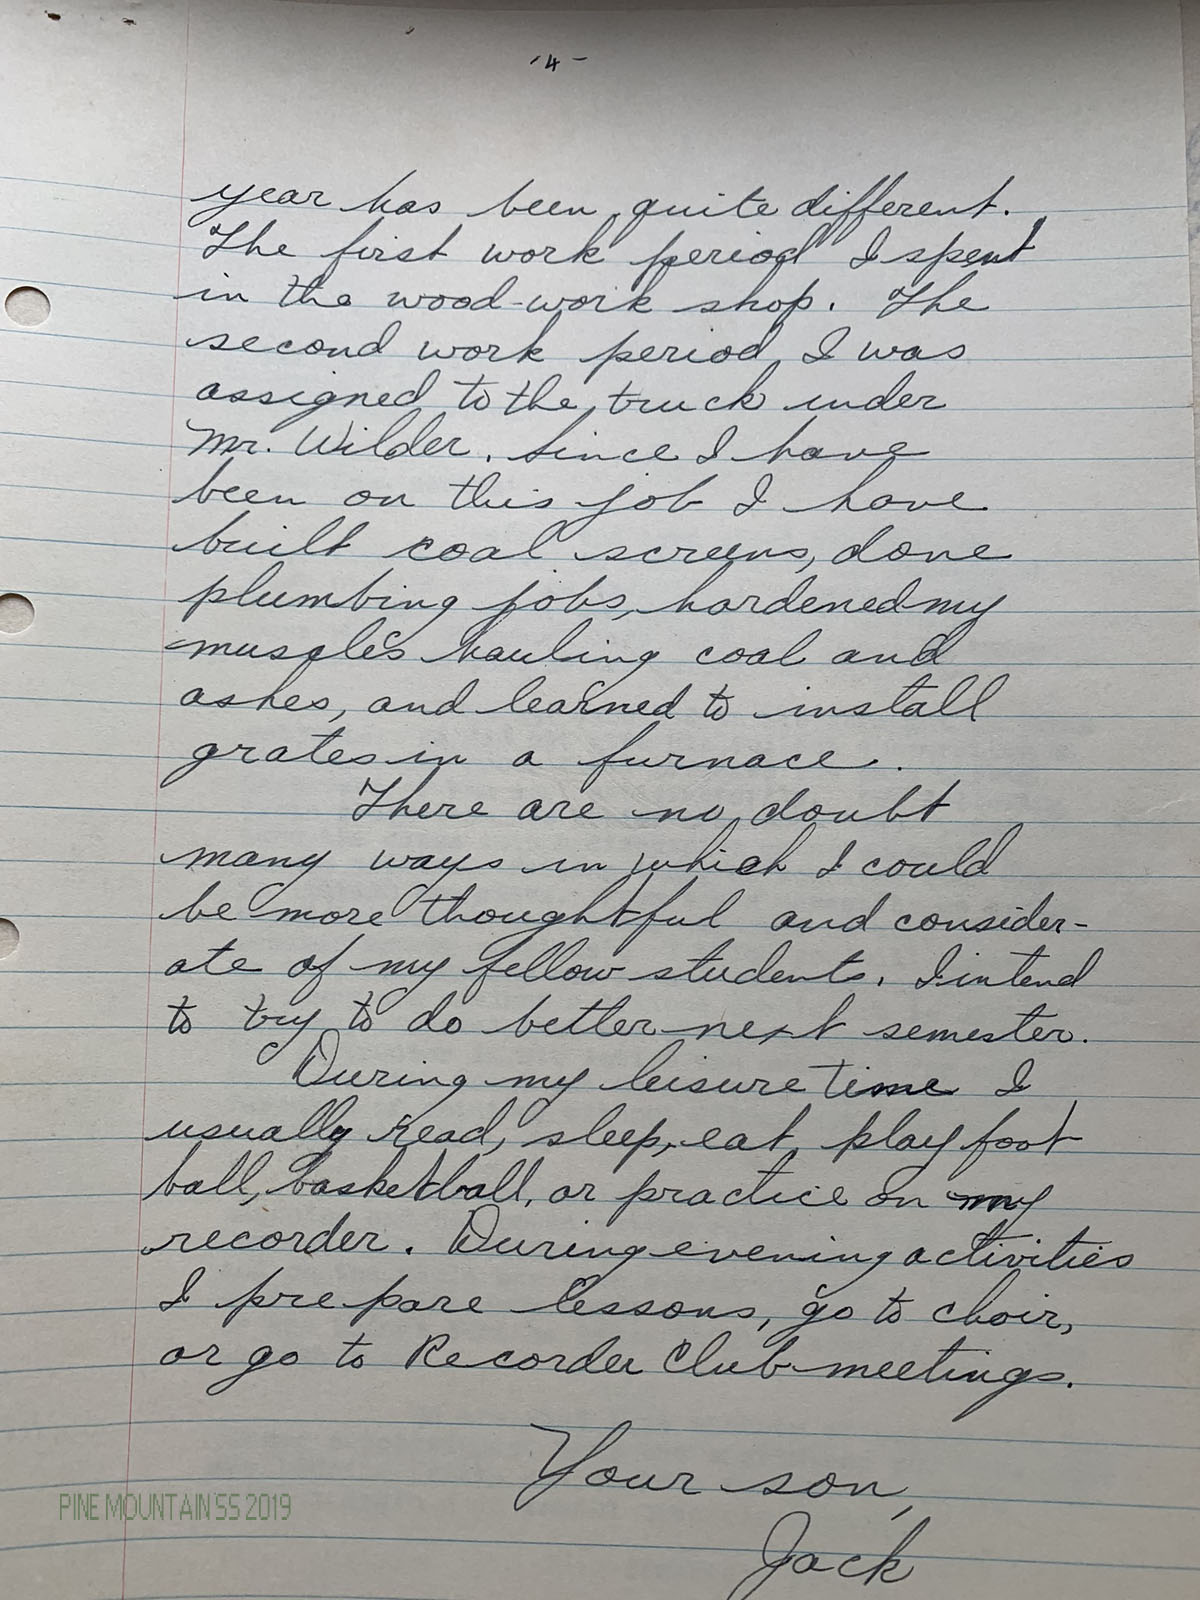 -4-
year has been quite different.
The first work period I spent
in the wood-work shop. The
second work period I was
assigned to the truck under
Mr. Wilder. Since I have
been on this job I have
built coal screens, done
plumbing jobs, hardened my
muscles hauling coal and
ashes, and learned to install
grates in a furnace.
There are no doubt
many ways in which I could
be more thoughtful and consider-
ate of my fellow students. I intend
to try to do better next semester.
During my leisure time I
usually read, sleep, eat, play foot
ball, basketball, or practice on my
recorder. During evening activities
I prepare lessons, go to choir,
or go to Recorder Club meetings.
Your son,
Jack
PINE MOUNTAIN SS 2019